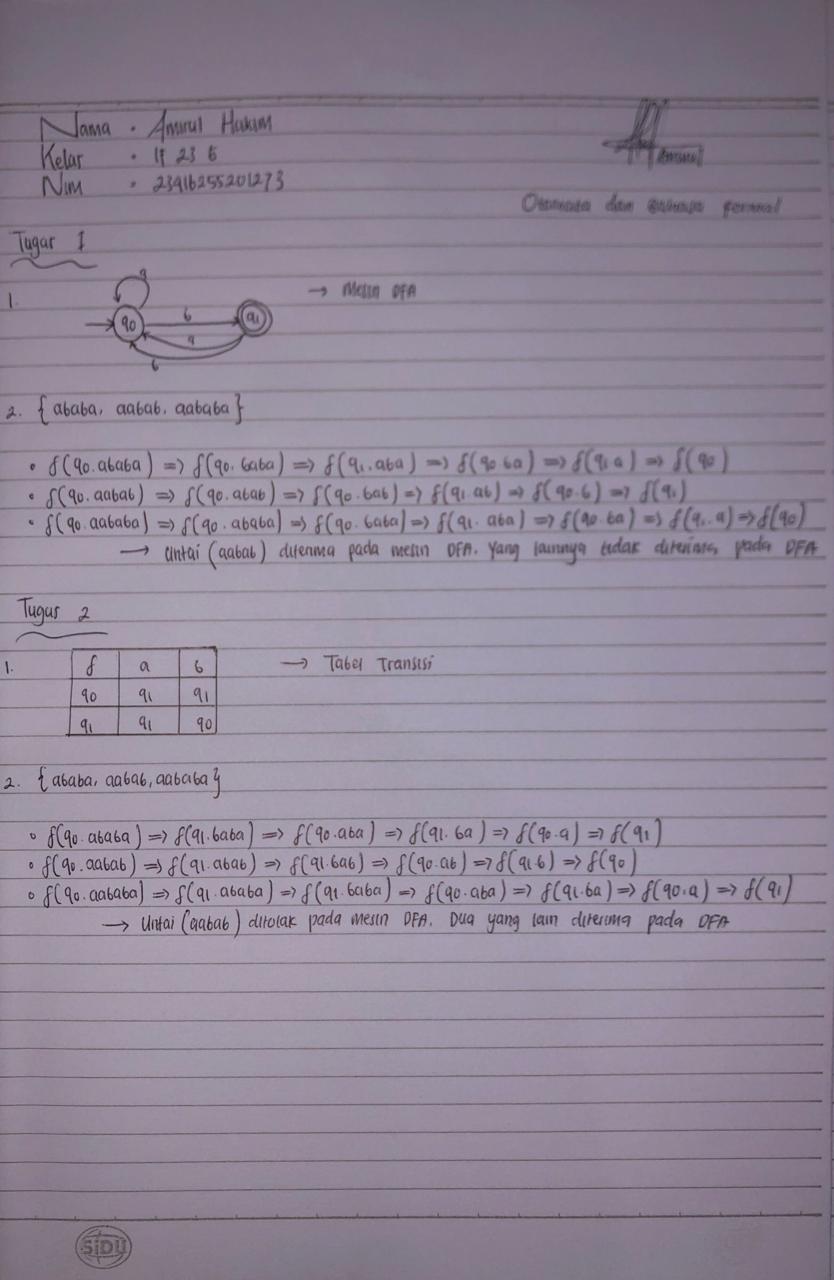 Nama : Amirul Hakim
Kelas : IF 23 E
Nim : 23416255201273
Amirul
Otomata dan Bahasa Formal
Tugas 1
1.
a
→ Mesin DFA
q0 b q1
a
b
2. {ababa, aabab, aababa}
• f(q0.ababa) => f(q0.baba) => f(q1.aba) => f(q0.ba) => f(q1.a) => f(q0)
• f(q0.aabab) => f(q0.abab) => f(q0.bab) => f(q1.ab) => f(q0.b) => f(q1)
• f(q0.aababa) => f(q0.ababa) => f(q0.baba) => f(q1.aba) => f(q0.ba) => f(q1.a) => f(q0)
→ Untai (aabab) diterima pada mesin DFA. Yang lainnya tidak diterima pada DFA
Tugas 2
1. f a b → Tabel Transisi
q0 q1 q1
q1 q1 q0
2. {ababa, aabab, aababa}
• f(q0.ababa) => f(q1.baba) => f(q0.aba) => f(q1.ba) => f(q0.a) => f(q1)
• f(q0.aabab) => f(q1.abab) => f(q1.bab) => f(q0.ab) => f(q1.b) => f(q0)
• f(q0.aababa) => f(q1.ababa) => f(q1.baba) => f(q0.aba) => f(q1.ba) => f(q0.a) => f(q1)
→ Untai (aabab) ditolak pada mesin DFA. Dua yang lain diterima pada DFA
SiDU